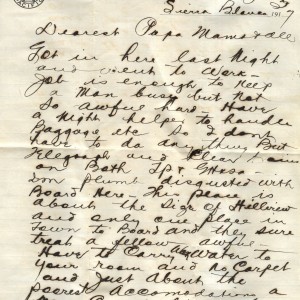 Sierra Blanca 191
Dearest Papa Mama & all
Got in here last Night
and went to Work -
Job is enough to Keep
a Man busy but Not
So awful hard - Have
a Night helper to handle
Baggage etc So I dont
have to do anything But
Telegraph and Clear trains
on Both TP & GH&SA -
am plumb disgusted with
Board Here - This place is
about the Size of
and only one place in
town to Board and they sure
treat a fellow awful -
Have to Carry Water to
your room and no Carpet
and Just About the
poorest Accomodations a